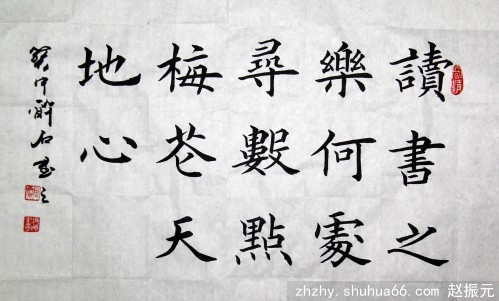 讀書之
樂何處
尋數點
梅花天
地心
zhzhy.shuhua66.com 赵振元